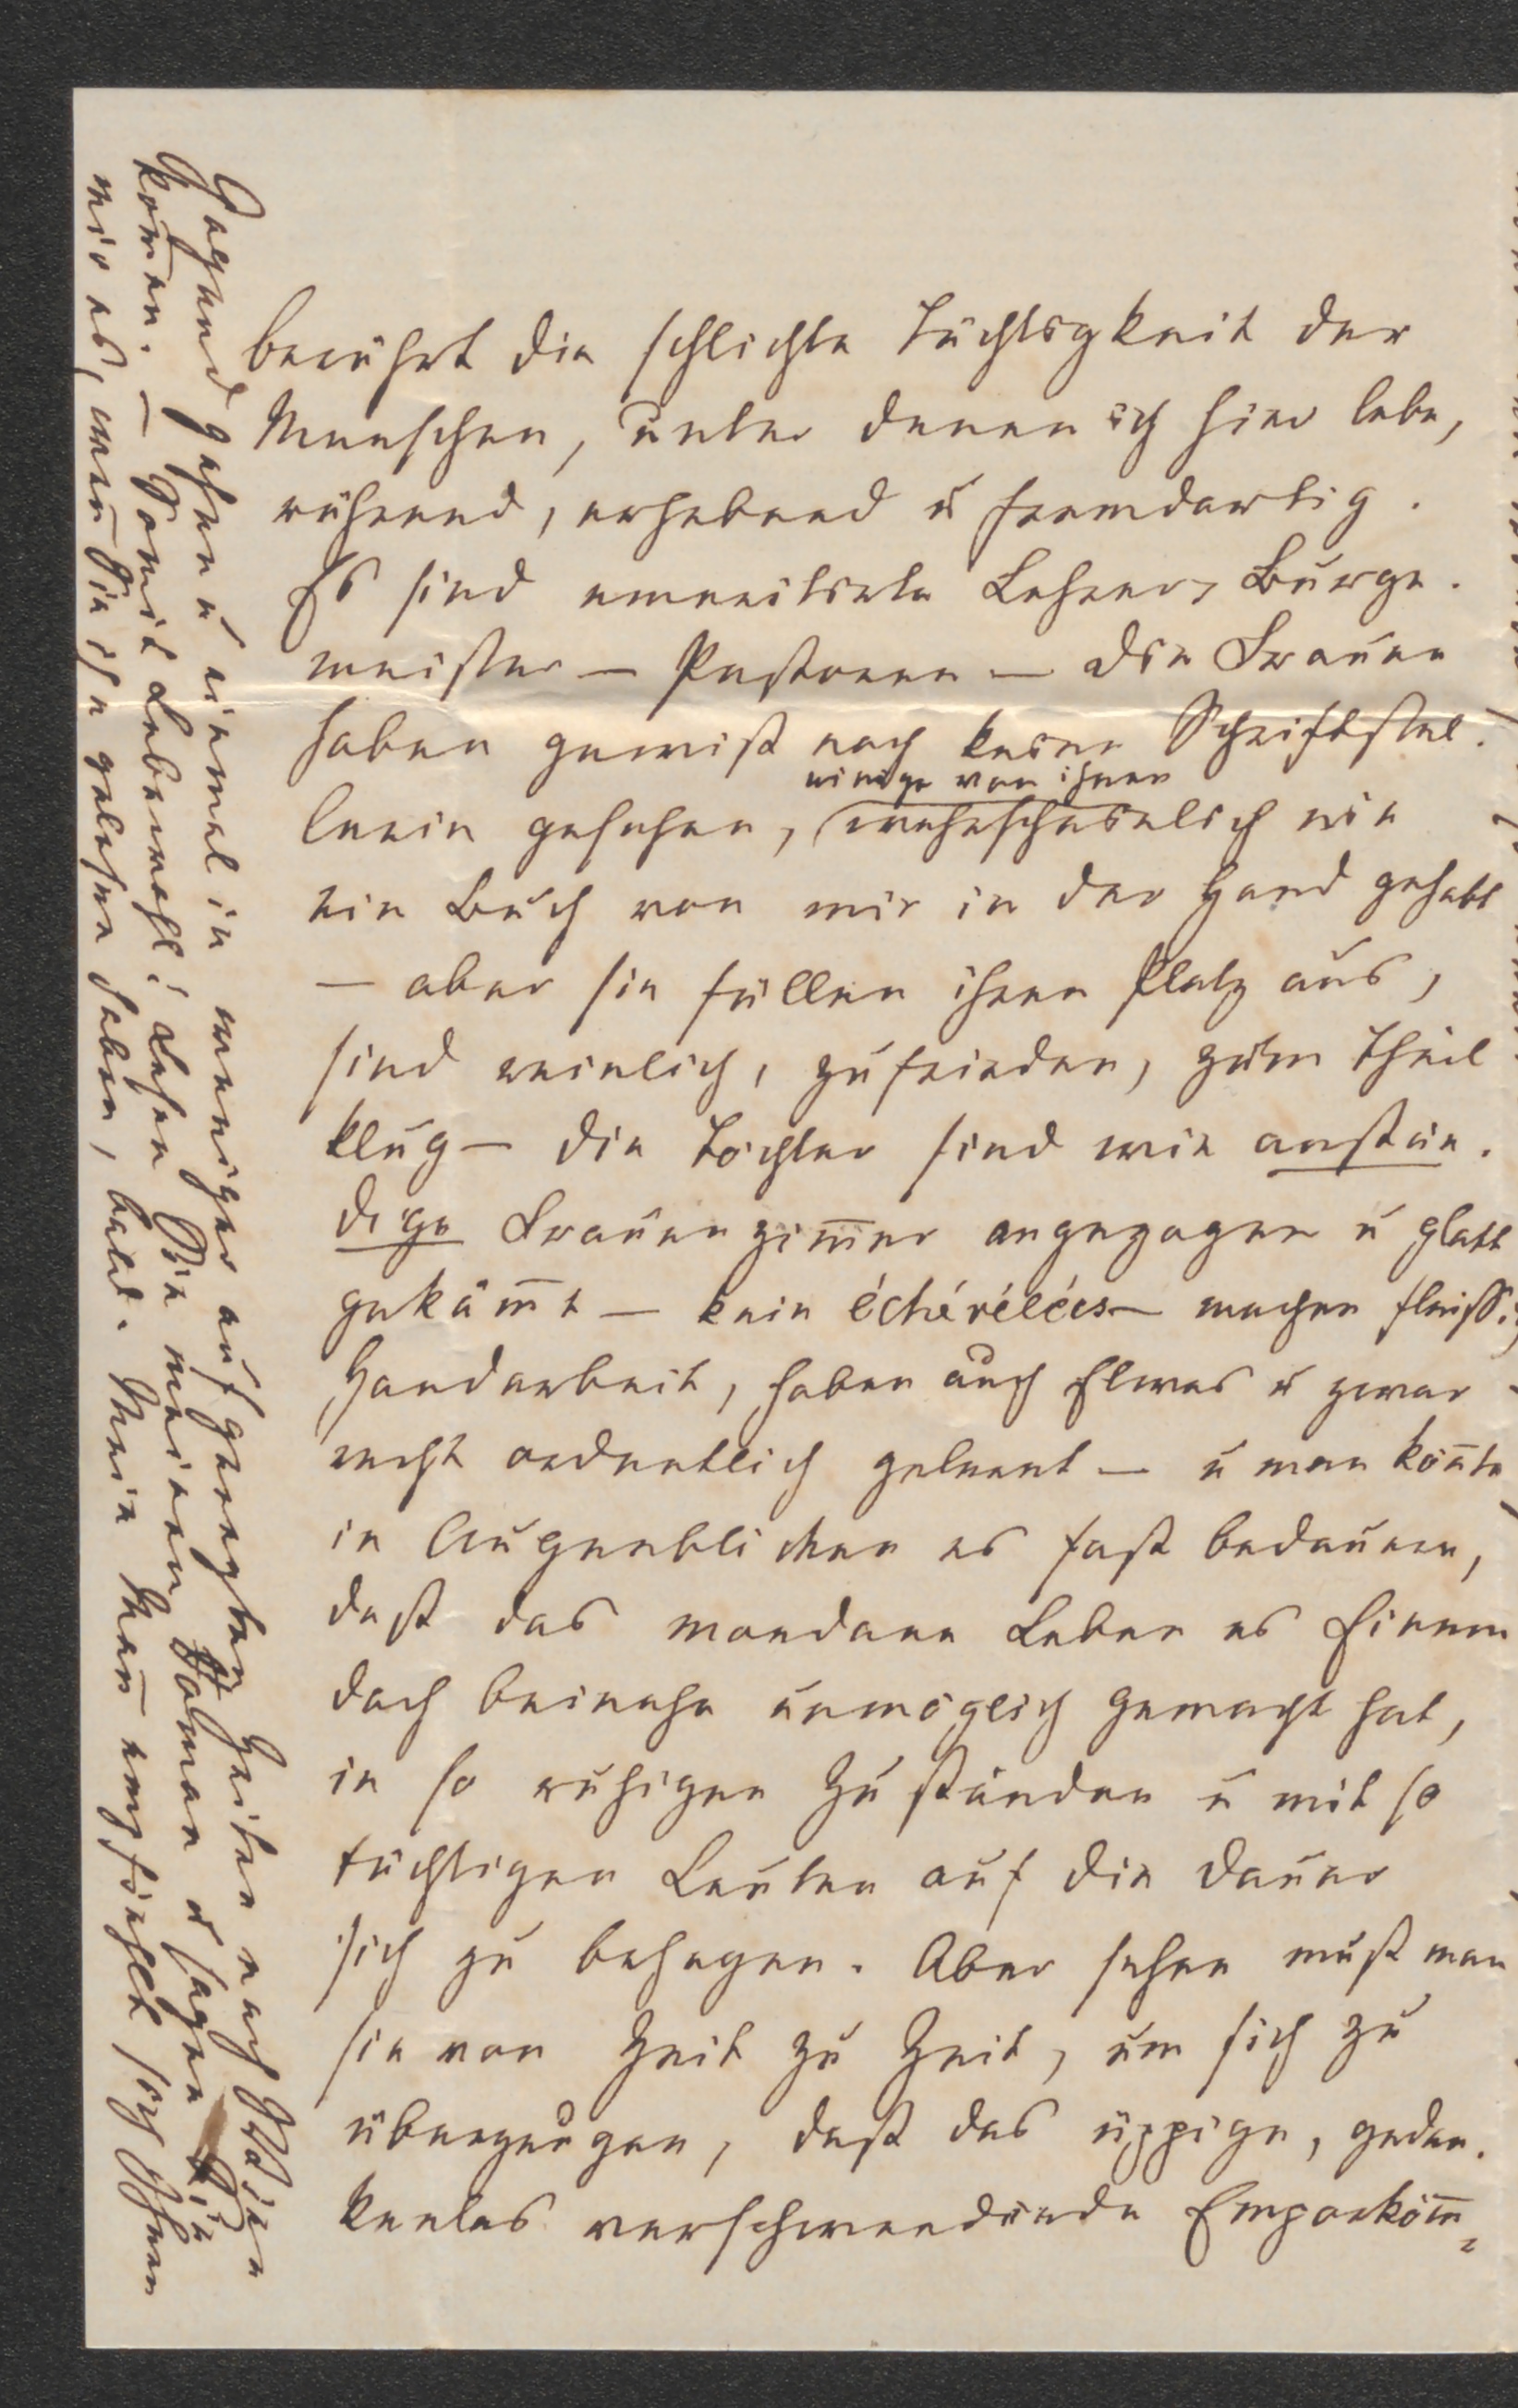 berührt die schlichte Tüchtigkeit der
Menschen, unter denen ich hier lebe,
rührend, erhebend u fremdartig.
Es sind emeritirte Lehrer, Bürge-
meister — Pastoren — die Frauen
haben gewiß noch keine Schriftstel-
einige von ihnen
lerin gesehen, wahrscheinlich nie
ein Buch von mir in der Hand gehabt
— aber sie füllen ihren Platz aus,
sind reinlich, zufrieden, zum Theil
klug — die Töchter sind wie anstän-
dige Frauenzimmer angezogen u glatt
gekäm̅t — kein échévelées — machen fleißig
Handarbeit, haben auch Etwas u zwar
recht ordentlich gelernt — u man kön̅te
in Augenblicken es fast bedauern,
daß das mondane Leben es Einem
doch beinahe unmöglich gemacht hat,
in so ruhigen Zuständen u mit so
tüchtigen Leuten auf die Dauer
sich zu behagen. Aber sehen muß man
sie von Zeit zu Zeit, um sich zu
überzeugen, daß das üppige, gedan-
kenlos verschwendende Emporköm̅-
Gegend gehen u einmal in weniger aufgeregten Zeiten nach Wien
kom̅en. — Somit Lebewohl! Lesen Sie meinen Roman u sagen Sie
mir es, wen̅ Sie ihn gelesen haben, bald. Mein Man̅ empfiehlt sich Ihnen